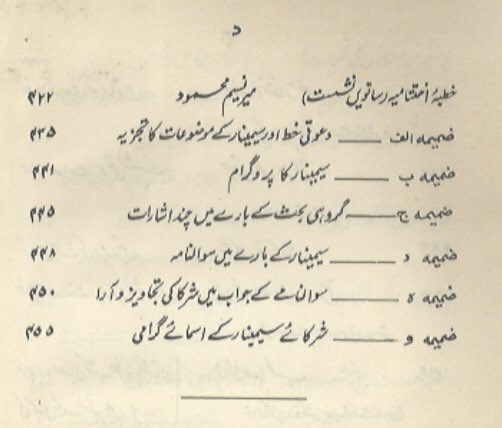 د
خطبۂ اختتامیہ (ساتویں نشست) میر نسیم محمود ۴۲۲
ضمیمہ الف ــــ دعوتی خط اور سیمینار کے موضوعات کا تجزیہ ۴۳۵
ضمیمہ ب ــــ سیمینار کا پروگرام ۴۴۱
ضمیمہ ج ــــ گروہی بحث کے بارے میں چند اشارات ۴۴۵
ضمیمہ د ــــ سیمینار کے بارے میں سوالنامہ ۴۴۸
ضمیمہ ہ ــــ سوالنامے کے جواب میں شرکا کی تجاویز و آرا ۴۵۰
ضمیمہ و ــــ شرکائے سیمینار کے اسمائے گرامی ۴۵۵